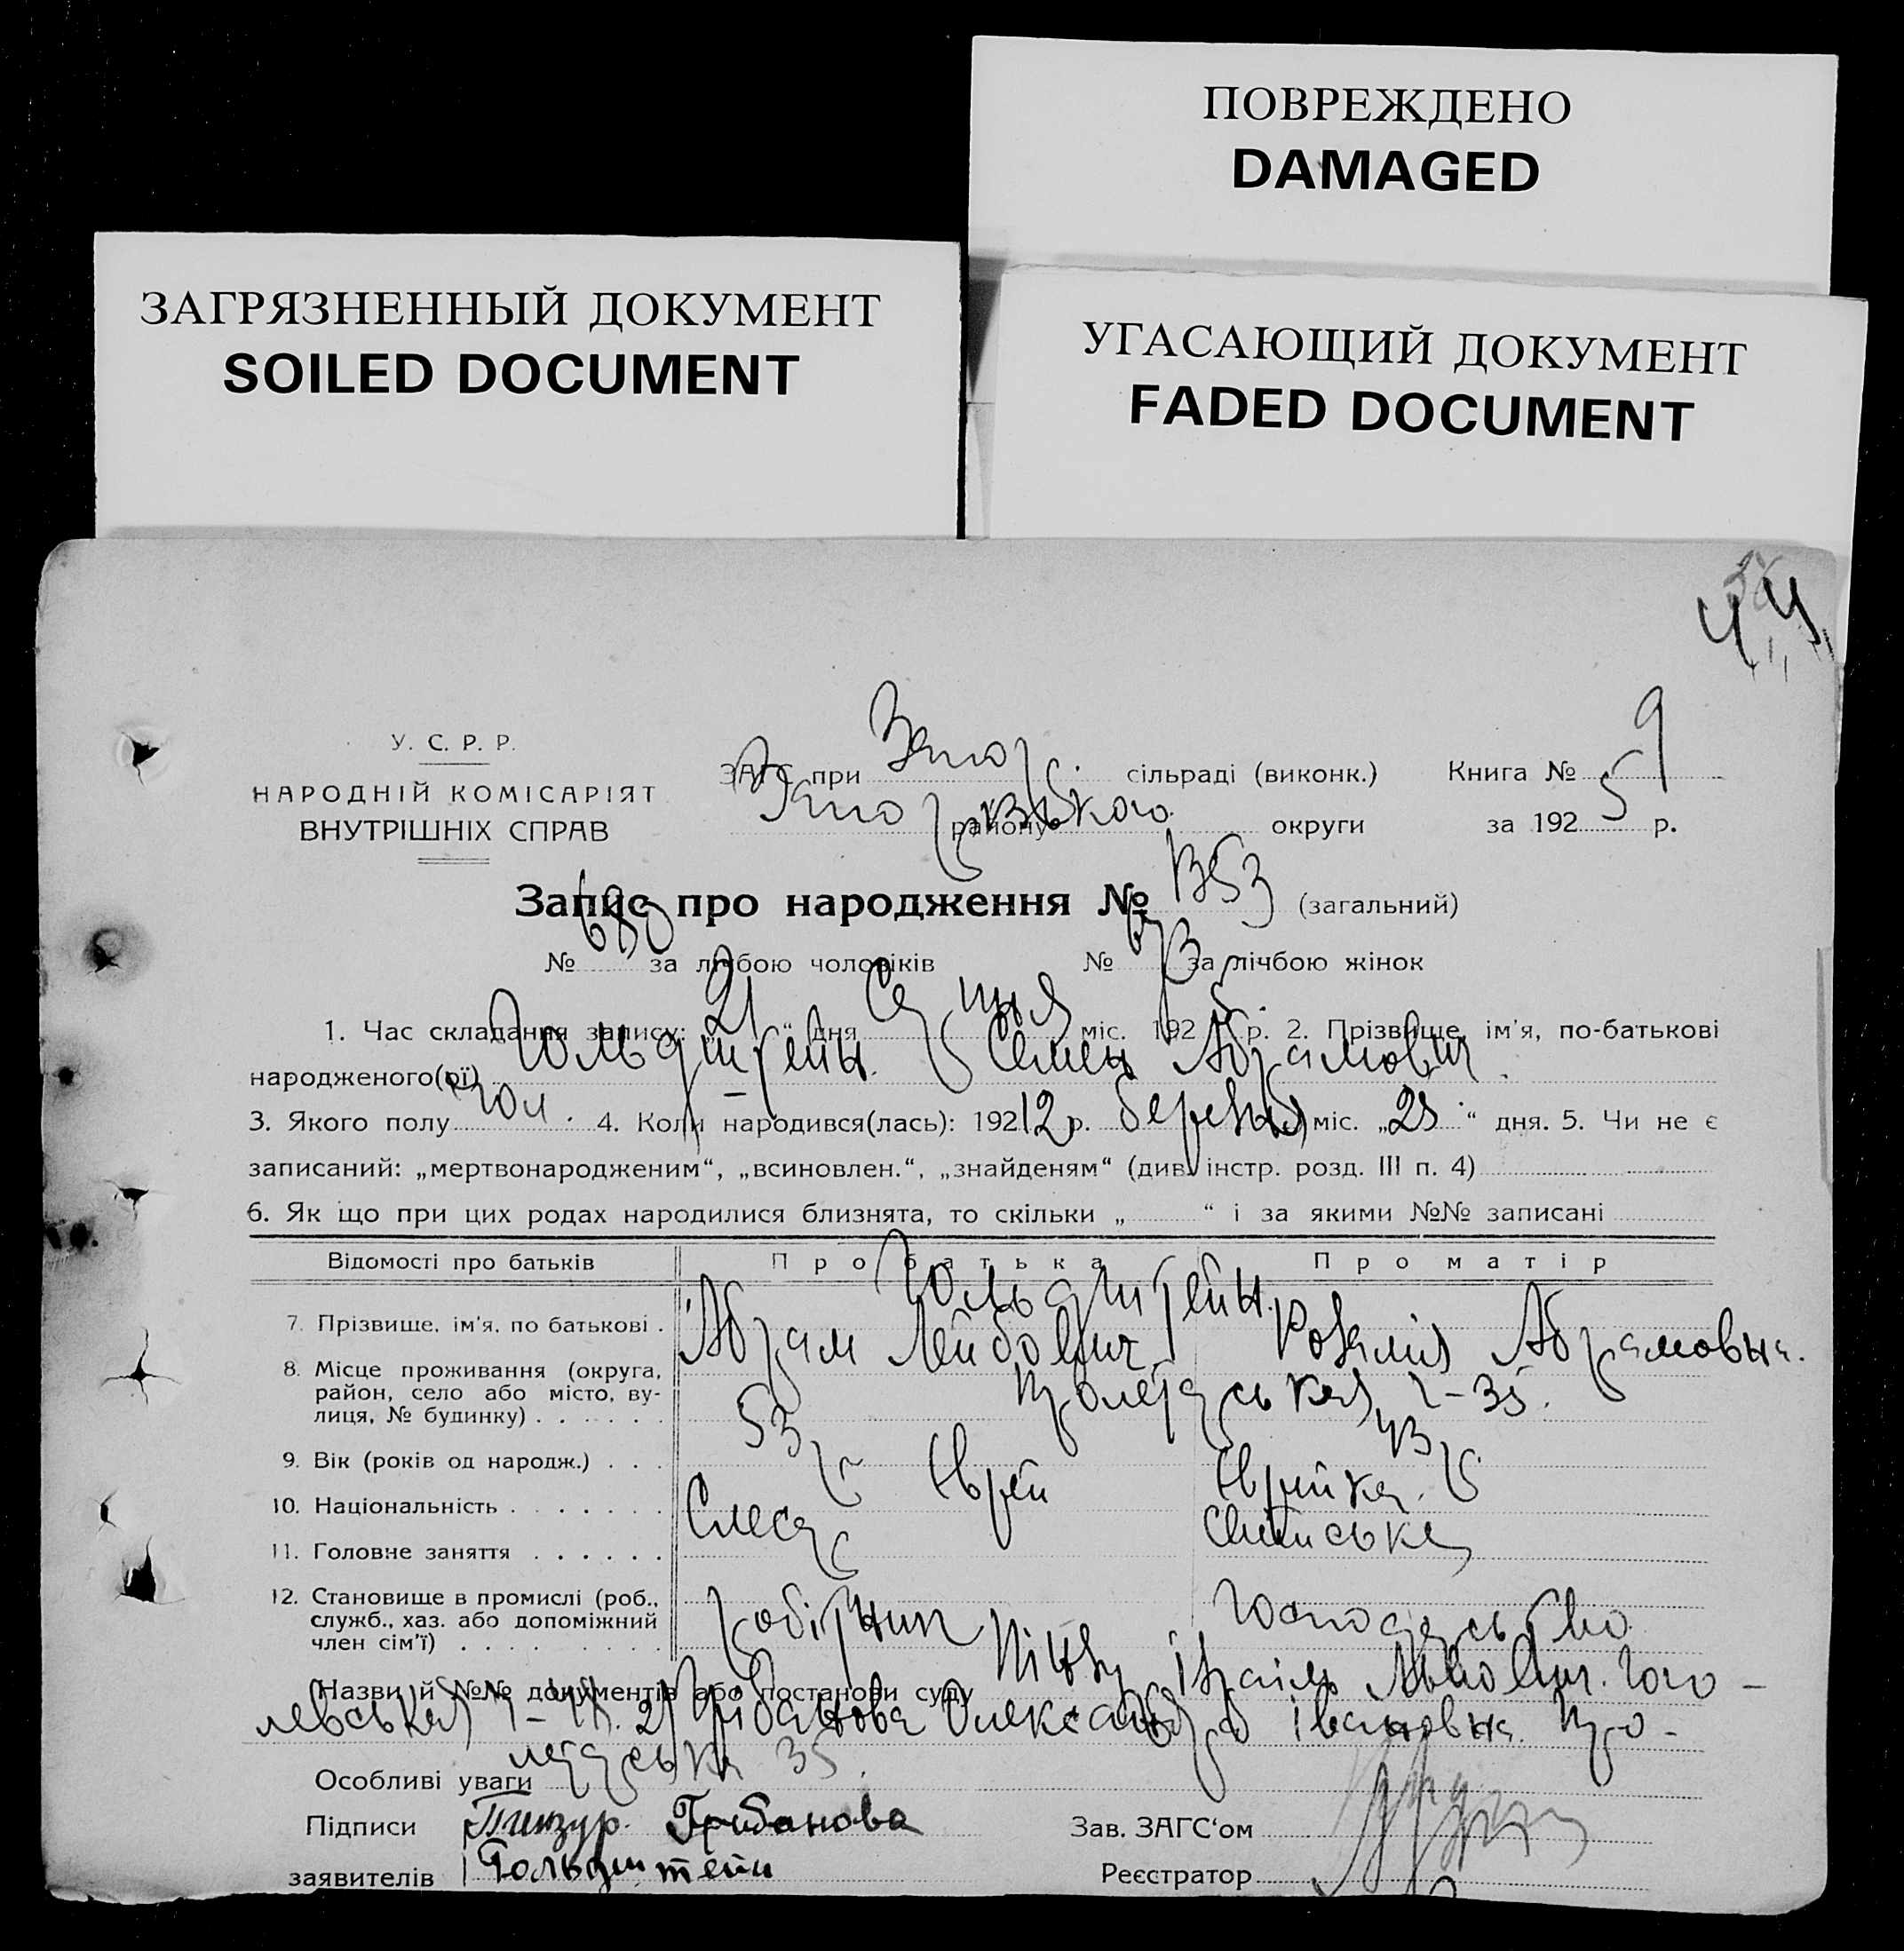 ПОВРЕЖДЕНО
DAMAGED
ЗАГРЯЗНЕННЫЙ ДОКУМЕНТ
SOILED DOCUMENT
УГАСАЮЩИЙ ДОКУМЕНТ
FADED DOCUMENT
44
У. С. Р. Р.
НАРОДНІЙ КОМІСАРІЯТ
ВНУТРІШНІХ СПРАВ
ЗАГС при Запор. сільраді (виконк.) Книга № 9
району округи за 1925 р.
Запис про народження № 1353 (загальний)
№ 680 за лічбою чоловіків № 673 за лічбою жінок
1. Час складання запису: " 21 " дня Сичня міс. 1925 р. 2. Прізвище, ім'я, по-батькові
народженого(ої) Гольдштейн Семен Абрамович
3. Якого полу чол. 4. Коли народився(лась): 19212 р. березня міс. „23" дня. 5. Чи не є
записаний: „мертвонародженим", „всиновлен.", „знайденям" (див. інстр. розд. III п. 4)
6. Як що при цих родах народилися близнята, то скільки „ " і за якими №№ записані
Відомості про батьків Про батька Про матір
Гольдштейн
7. Прізвище, ім'я, по батькові . Абрам Лейбович Розалія Абрамовна.
8. Місце проживання (округа, район, село або місто, вулиця, № будинку) . . . . . . Пролетарська, 2-35.
9. Вік (років од народж.) . . . 53 р. 43 р.
10. Національність . . . . . . . Єврей Єврейка.
11. Головне заняття . . . . . . Слесар Селиське
12. Становище в промислі (роб., служб., хаз. або допоміжний член сім'ї) . . . . . . . . . робітник господарство
Назви й №№ документів або постанови суду Ізраіль Львович. Гого-
левська Грибанова Олександра Івановна. Про-
летарська 35.
Особливі уваги
Підписи Грибанова Зав. ЗАГС'ом
заявителів Гольдштейн Реєстратор